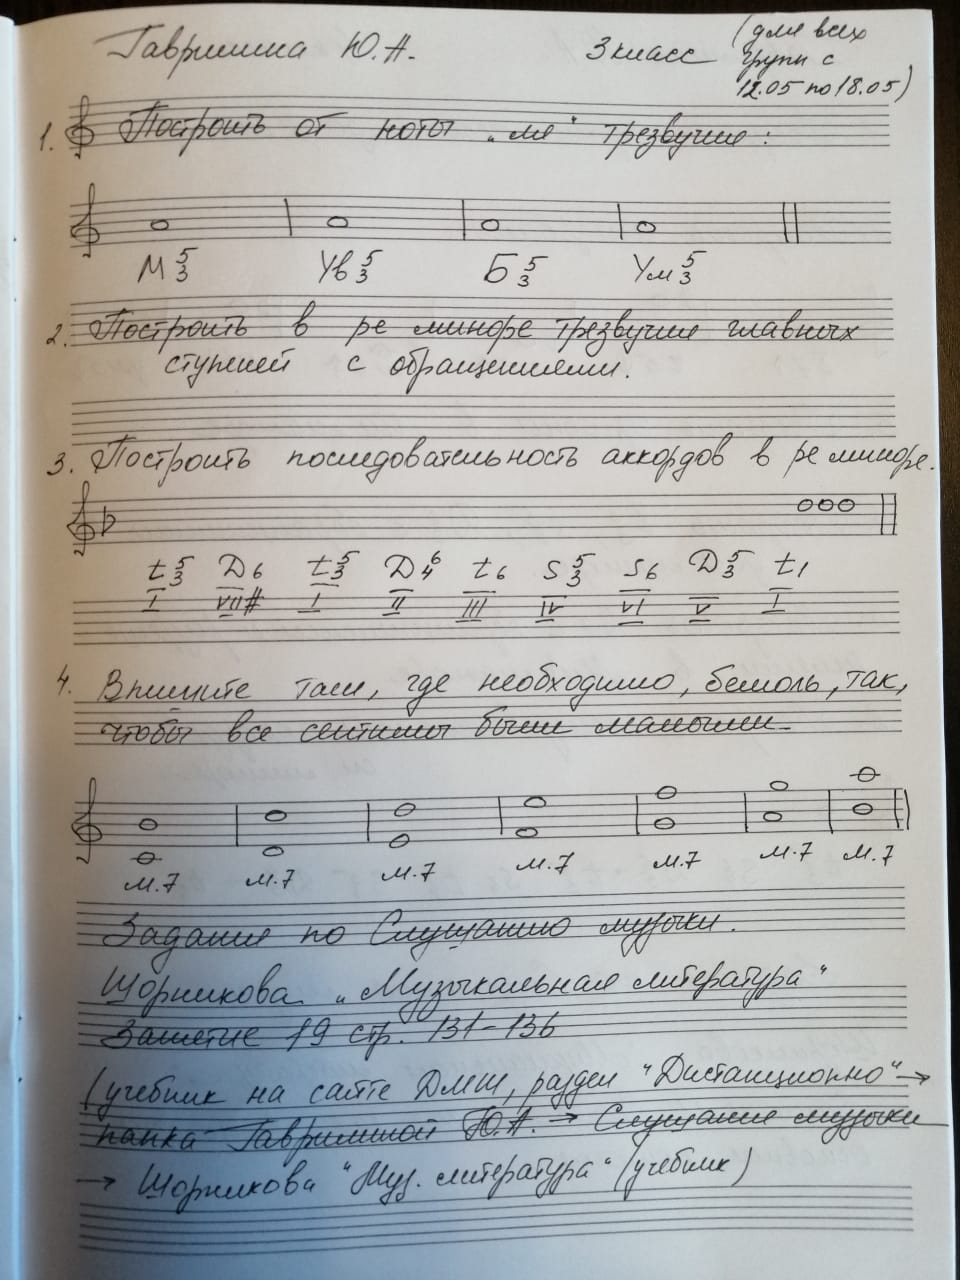 Гавришина Ю.А. 3 класс (для всех
групп с
12.05 по 18.05)
1. Построить от ноты "ля" трезвучие:
М 5/3 Ув 5/3 Б 5/3 Ум 5/3
2. Построить в ре миноре трезвучия главных
ступеней с обращениями.
3. Построить последовательность аккордов в ре миноре.
t 5/3 D6 t 5/3 D 6/4 t6 s 5/3 s6 D 5/3 t1
I VII# I II III IV VI V I
4. Впишите там, где необходимо, бемоль, так,
чтобы все септимы были малыми.
м.7 м.7 м.7 м.7 м.7 м.7 м.7
Задание по Слушанию музыки.
Шорникова "Музыкальная литература"
Занятие 19 стр. 131-136
(учебник на сайте ДМШ, раздел "Дистанционно" →
папка Гавришиной Ю.А. → Слушание музыки
→ Шорникова "Муз. литература" (учебник)